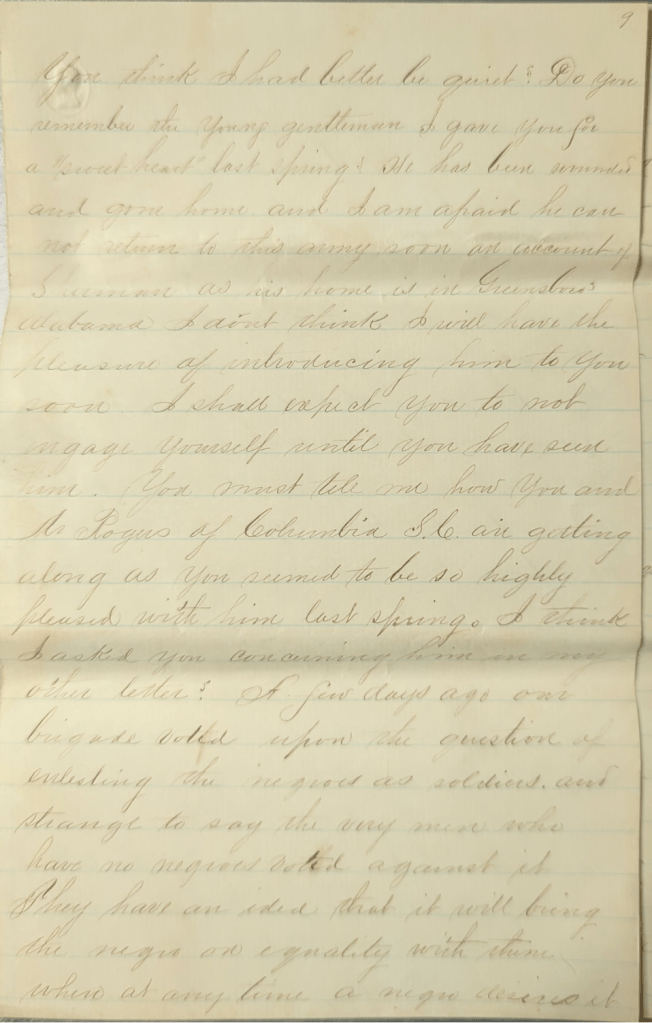 9
You think I had better be quiet? Do you
remember the young gentleman I gave you for
a "sweet heart" last spring? He has been wounded
and gone home and I am afraid he can
not return to this army soon on account of
Sherman as his home is in Greensboro
Alabama I don't think I will have the
pleasure of introducing him to you
soon. I shall expect you to not
engage yourself until you have seen
him. You must tele me how you and
Mr Rogers of Columbia S.C. are getting
along as you seemed to be so highly
pleased with him last spring. I think
I asked you concerning him in my
other letter? A few days ago our
brigade voted upon the question of
enlisting the negroes as soldiers. and
strange to say the very men who
have no negroes voted against it
They have an idea that it will bring
the negro on equality with them
when at any time a negro desires it